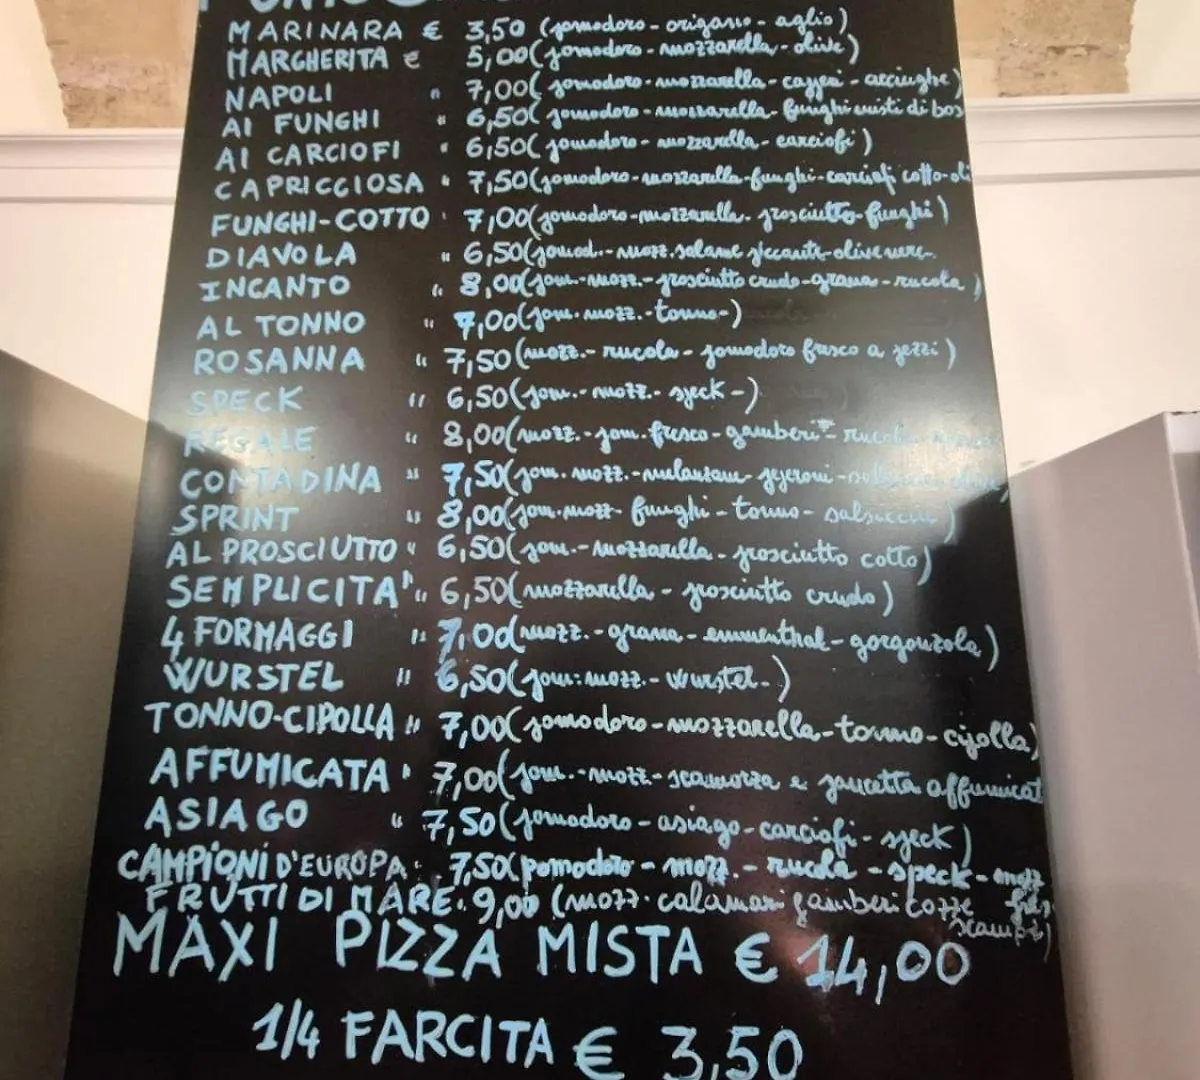 MARINARA € 3,50 (pomodoro - origano - aglio)
MARGHERITA € 5,00 (pomodoro - mozzarella - olive)
NAPOLI " 7,00 (pomodoro - mozzarella - capperi - acciughe)
AI FUNGHI " 6,50 (pomodoro - mozzarella - funghi misti di bos
AI CARCIOFI " 6,50 (pomodoro - mozzarella - carciofi)
CAPRICCIOSA " 7,50 (pomodoro - mozzarella - funghi - carciofi cotto - oli
FUNGHI-COTTO " 7,00 (pomodoro - mozzarella - prosciutto - funghi)
DIAVOLA " 6,50 (pomod. - mozz. salame piccante - olive nere
INCANTO " 8,00 (pom. - mozz. - prosciutto crudo - grana - rucola)
AL TONNO " 7,00 (pom. mozz. - tonno -)
ROSANNA " 7,50 (mozz. - rucola - pomodoro fresco a pezzi)
SPECK " 6,50 (pom. - mozz. - speck -)
REGALE " 8,00 (mozz. - pom. fresco - gamberi - rucola
CONTADINA " 7,50 (pom. mozz. - melanzane - peperoni -
SPRINT " 8,00 (pom. mozz - funghi - tonno - salsiccia)
AL PROSCIUTTO " 6,50 (pom. - mozzarella - prosciutto cotto)
SEMPLICITA' " 6,50 (mozzarella - prosciutto crudo)
4 FORMAGGI " 7,00 (mozz. - grana - emmenthal - gorgonzola)
WURSTEL " 6,50 (pom: mozz. - wurstel -)
TONNO-CIPOLLA " 7,00 (pomodoro - mozzarella - tonno - cipolla)
AFFUMICATA " 7,00 (pom. - mozz - scamorza e pancetta affumicat
ASIAGO " 7,50 (pomodoro - asiago - carciofi - speck)
CAMPIONI D'EUROPA " 7,50 (pomodoro - mozz. - rucola - speck - mozz
FRUTTI DI MARE " 9,00 (mozz. calamari gamberi cozze
scampi)
MAXI PIZZA MISTA € 14,00
1/4 FARCITA € 3,50